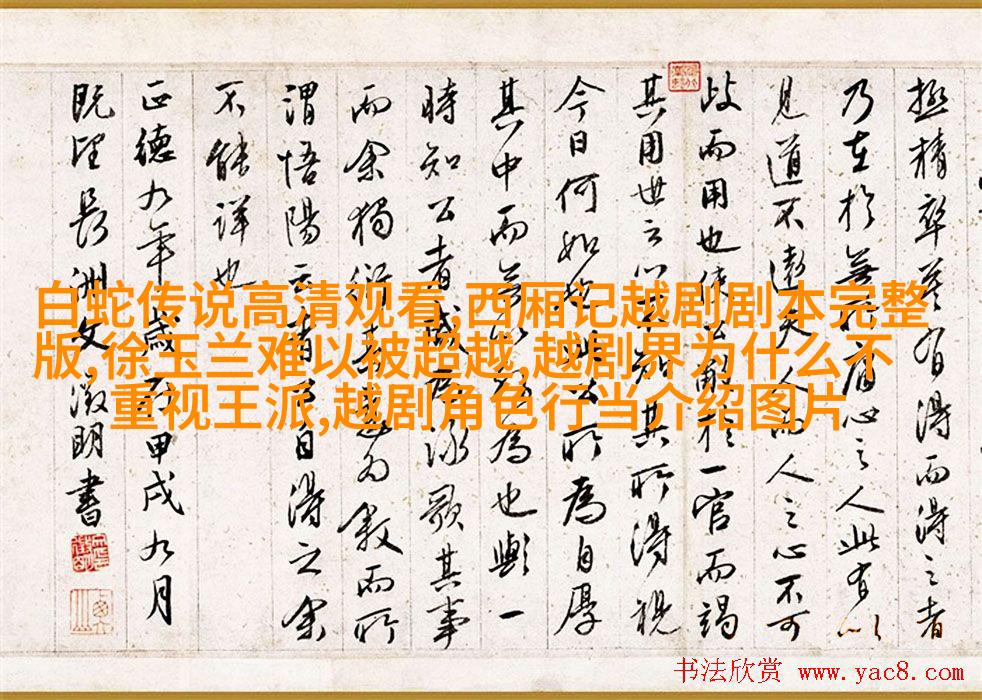 極精卒莫有得而得之者
乃在於無心之人此有以
見道不邃夫人而人之心不可
歧而用也使公於一官而竭
其用世之心其所得視
今日何如也公所為自厚
其中而無為也歟一
時知公者詠歌其事
而余獨為敘而所
謂悟陽云者自得之余
不能詳也
正德九年歲甲戌九月
既望長洲文徵明書
白蛇传说高清观看,西厢记越剧剧本完整
版,徐玉兰难以被超越,越剧界为什么不
重视王派,越剧角色行当介绍图片
书法欣赏 www.yac8.com